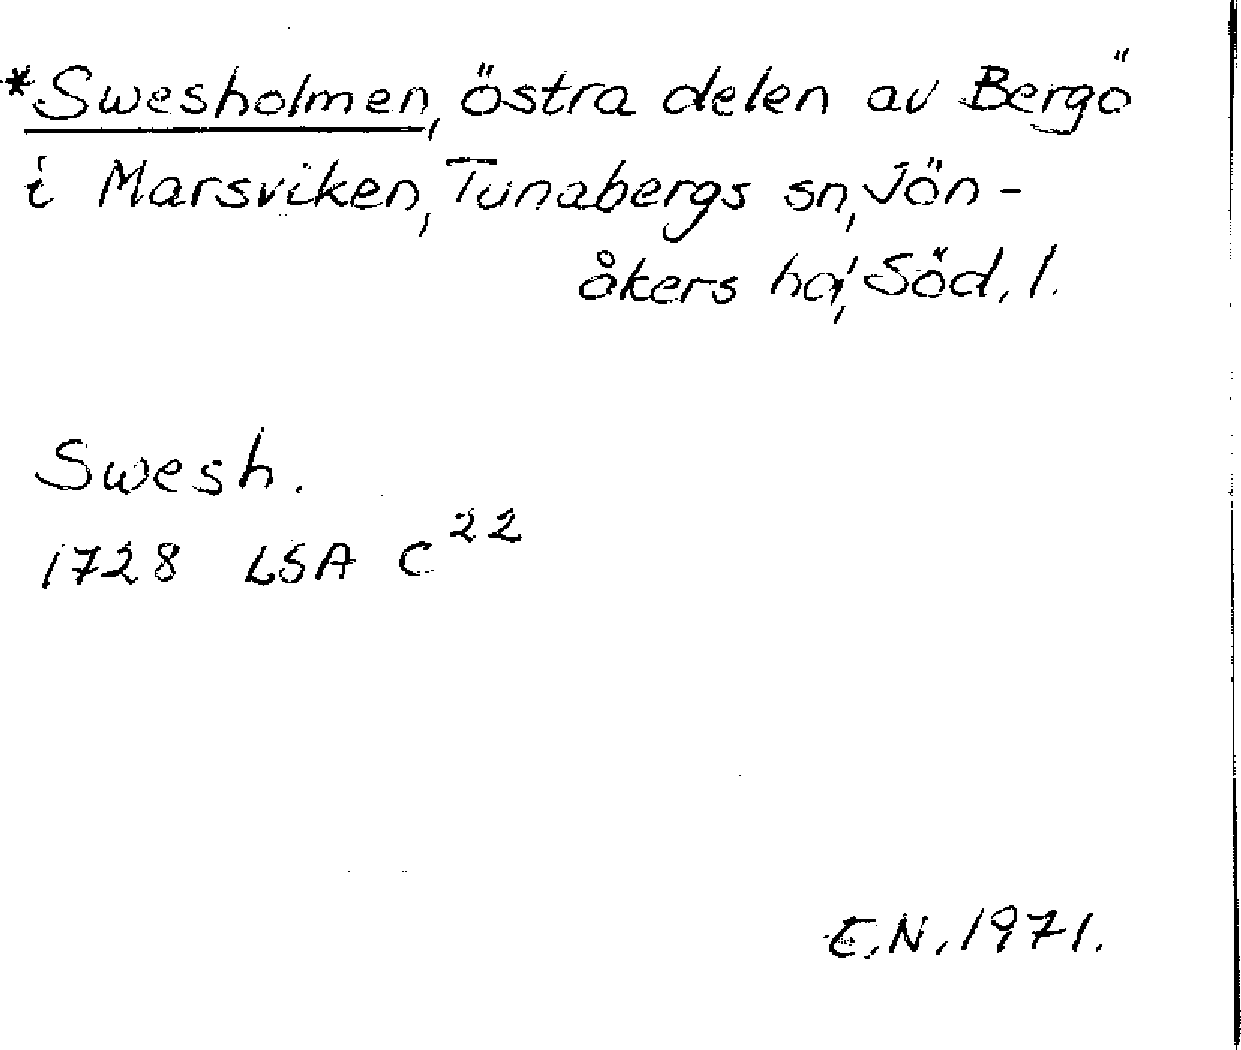 *Swesholmen, östra delen av Bergö
i Marsviken, Tunabergs sn, Jön-
åkers hd, Söd. l.
Swesh.
1728 LSA C²²
E.N. 1971.